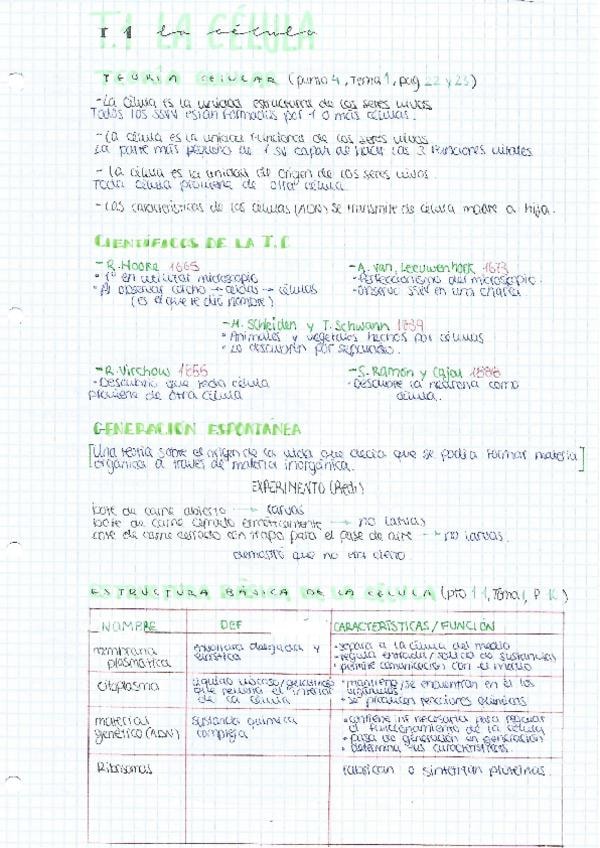 T.1 LA CÉLULA
TEORÍA CELULAR (punto 4, Tema 1, pag 22 y 23)
- La célula es la unidad estructural de los seres vivos
Todos los ssvv están formados por 1 o más células.
- La célula es la unidad funcional de los seres vivos
La parte más pequeña de 1 sv capaz de hacer las 3 funciones vitales
- La célula es la unidad de origen de los seres vivos.
Toda célula proviene de otra célula
- Las características de las células (ADN) se transmite de célula madre a hija.
CIENTÍFICOS DE LA T.C
- R. Hooke 1665
• 1º en utilizar microscopio
• Al observar corcho → celdas → células
(es el que le dió nombre)
- A. van Leeuwenhoek 1673
• Perfeccionismo del microscopio.
• Observó ssvv en una charca
- M. Schleiden y T. Schwann 1839
• Animales y vegetales hechos por células
• Lo descubren por separado.
- R. Virchow 1855
• Descubrió que toda célula
proviene de otra célula
- S. Ramón y Cajal 1888
• Descubre la neurona como
célula.
GENERACIÓN ESPONTÁNEA
[Una teoría sobre el origen de la vida que decía que se podía formar materia]
orgánica a través de materia inorgánica.
EXPERIMENTO (Redi)
bote de carne abierto → larvas
bote de carne cerrado erméticamente → no larvas
bote de carne cerrado con trapo para el pase de aire → no larvas.
demostró que no era cierto
ESTRUCTURA BÁSICA DE LA CÉLULA (pto 11, Tema 1, P
NOMBRE DEF CARACTERÍSTICAS / FUNCIÓN
membrana
plasmática
envoltura delgada y
elástica
• separa a la célula del medio
• regula entrada/salida de sustancias
• permite comunicación con el medio
citoplasma
líquido viscoso/gelatinoso
que rellena el interior
de la célula
• mantiene/se encuentran en él los
orgánulos
• se producen reacciones químicas
material
genético (ADN)
sustancia química
compleja
• contiene inf necesaria para regular
el funcionamiento de la célula
• pasa de generación en generación
• determina sus características.
Ribosomas
fabrican o sintetizan proteínas.